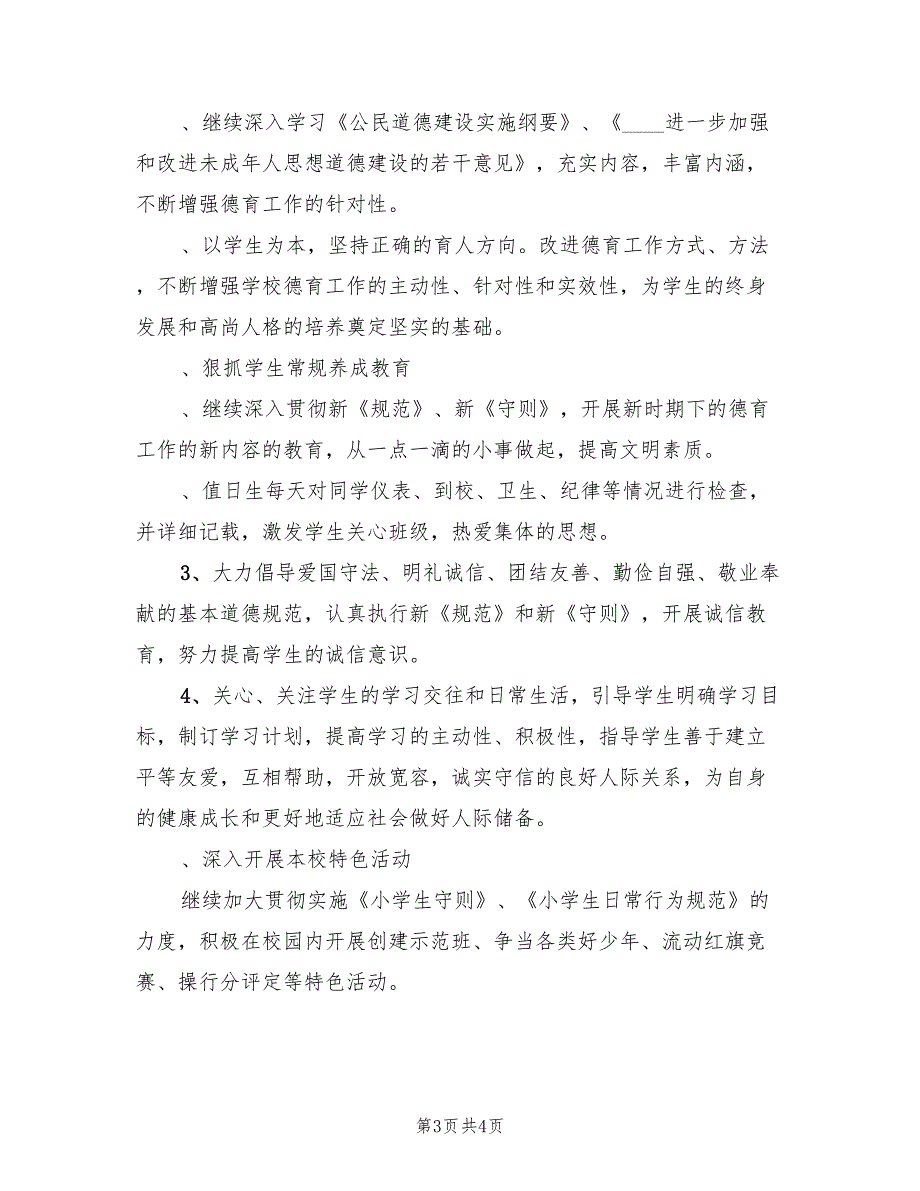 、继续深入学习《公民道德建设实施纲要》、《____进一步加强
和改进未成年人思想道德建设的若干意见》，充实内容，丰富内涵，
不断增强德育工作的针对性。
、以学生为本，坚持正确的育人方向。改进德育工作方式、方法
，不断增强学校德育工作的主动性、针对性和实效性，为学生的终身
发展和高尚人格的培养奠定坚实的基础。
、狠抓学生常规养成教育
、继续深入贯彻新《规范》、新《守则》，开展新时期下的德育
工作的新内容的教育，从一点一滴的小事做起，提高文明素质。
、值日生每天对同学仪表、到校、卫生、纪律等情况进行检查，
并详细记载，激发学生关心班级，热爱集体的思想。
3、大力倡导爱国守法、明礼诚信、团结友善、勤俭自强、敬业奉
献的基本道德规范，认真执行新《规范》和新《守则》，开展诚信教
育，努力提高学生的诚信意识。
4、关心、关注学生的学习交往和日常生活，引导学生明确学习目
标，制订学习计划，提高学习的主动性、积极性，指导学生善于建立
平等友爱，互相帮助，开放宽容，诚实守信的良好人际关系，为自身
的健康成长和更好地适应社会做好人际储备。
、深入开展本校特色活动
继续加大贯彻实施《小学生守则》、《小学生日常行为规范》的
力度，积极在校园内开展创建示范班、争当各类好少年、流动红旗竞
赛、操行分评定等特色活动。
第3页共4页